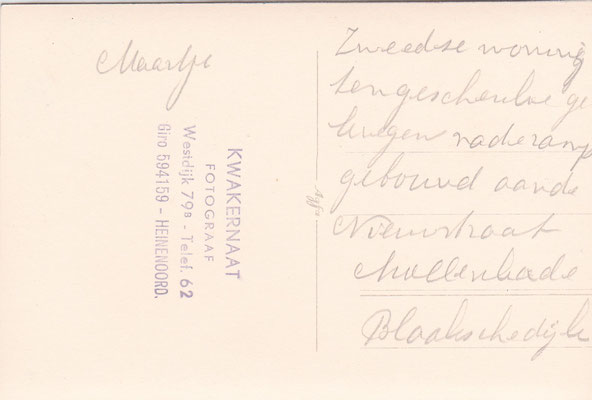 Maartje
KWAKERNAAT
FOTOGRAAF
Westdijk 79B - Telef. 62
Giro 594159 - HEINENOORD.
Agfa
Zweedse woning
ten geschenke ge
kregen na de ramp
gebouwd aan de
Nieuwstraat
Mollekade
Blaakschedijk